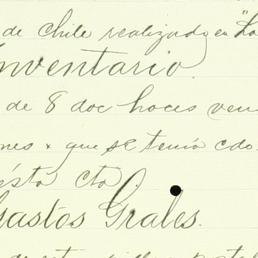 de Chile realizado en "La
Inventario.
de 8 doc hoces ven
nes x que se tenia cdo
ésta cta.
Gastos Grales.